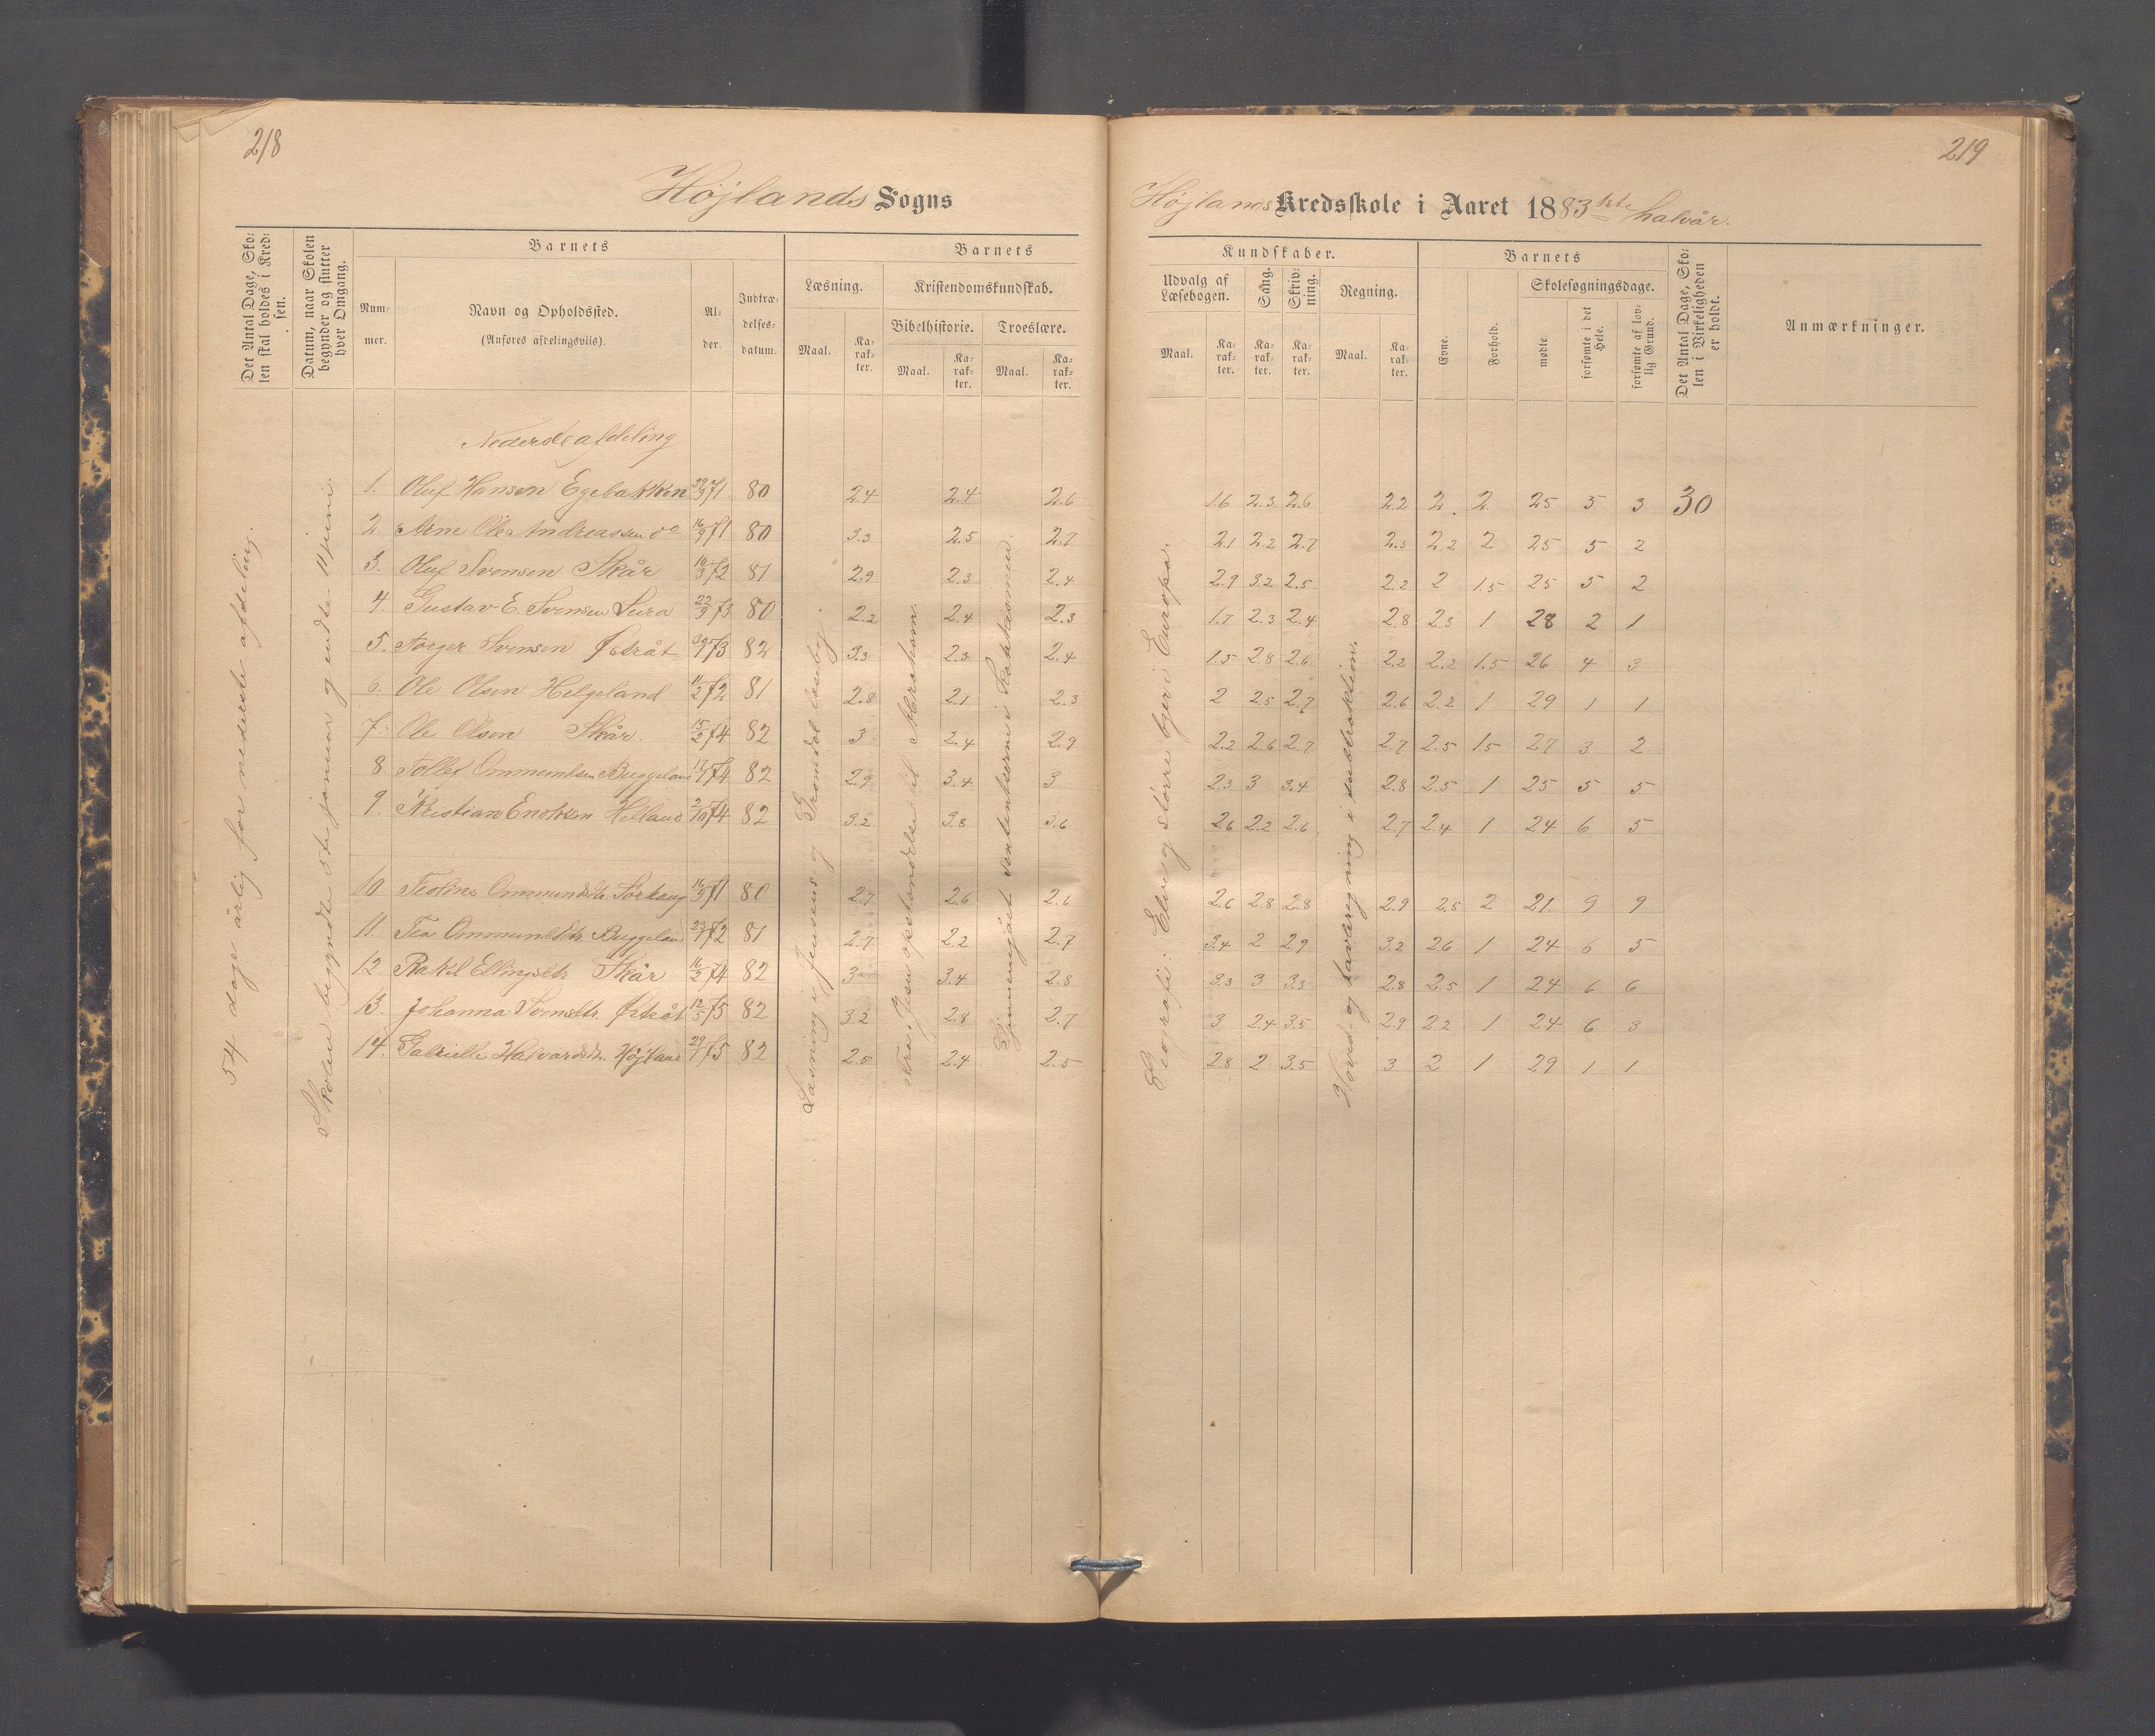 218
Højlands Sogns
Det Antal Dage, Sko-
len skal holdes i Kred-
sen.
Datum, naar Skolen
begynder og slutter
hver Omgang.
Barnets
Num-
mer.
Navn og Opholdssted.
(Anføres afdelingsviis).
Al-
der.
Indtræ-
delses-
datum.
Barnets
Læsning.
Maal.
Ka-
rak-
ter.
Kristendomskundskab.
Bibelhistorie.
Maal.
Ka-
rak-
ter.
Troeslære.
Maal.
Ka-
rak-
ter.
54 dage årlig for nederste afdeling.
Skolen begyndte 5te januar og endte 11 juni.
Nederste afdeling
1. Oluf Hansen Egebakken 71 80 2.4 2.4 2.6
2. Arne Ole Andreassen do 16/9 71 80 3.3 2.5 2.7
3. Oluf Svensen Skår 72 81 2.9 2.3 2.4
4. Gustav E. Svensen Lura 22/9 73 80 2.2 2.4 2.3
5. Torger Svensen Østråt 73 82 3.3 2.3 2.4
6. Ole Olsen Helgeland 11/2 72 81 2.8 2.1 2.3
7. Ole Olsen Skår. 15/2 74 82 3 2.4 2.9
8 Tollef Ommundsen Buggeland 17/1 74 82 2.9 3.4 3
9. Kristian Enoksen Helland 2/10 74 82 3.2 3.8 3.6
10 Ommundsdtr. 71 80 2.7 2.6 2.6
11. Tea Ommundsdtr. Buggeland 72 81 2.7 2.2 2.7
12 Rakel Ellingsdtr Skår 16/2 74 82 3 3.4 2.8
13. Johanna Svensdtr. Østråt 75 82 3.2 2.8 2.7
14. Gabrielle Halvardsdtr. Højland 75 82 2.5 2.4 2.5
Læsning i Jensens og
Fra Jesu opstandelse til
Gjennemgået i katekismen.
219
Højlands Kredsskole i Aaret 1883 1ste halvår.
Kundskaber.
Udvalg af
Læsebogen.
Maal.
Ka-
rak-
ter.
Sang.
Ka-
rak-
ter.
Skriv-
ning.
Ka-
rak-
ter.
Regning.
Maal.
Ka-
rak-
ter.
Barnets
Evne.
Forhold.
Skolesøgningsdage.
mødte.
forsømte i det
Hele.
forsømte af lov-
lig Grund.
Det Antal Dage, Sko-
len i Virkeligheden
er holdt.
Anmærkninger.
Geografi: Elve og større byer i Europa.
Hoved- og tavleregning i subtraktion.
1.6 2.3 2.6 2.2 2. 2 25 5 3 30
2.1 2.2 2.7 2.3 2.2 2 25 5 2
2.9 3.2 2.5 2.2 2 1.5 25 5 2
1.7 2.3 2.4 2.8 2.3 1 28 2 1
1.5 2.8 2.6 2.2 2.2 1.5 26 4 3
2 2.5 2.7 2.6 2.2 1 29 1 1
2.2 2.6 2.7 2.7 2.5 1.5 27 3 2
2.3 3 3.4 2.8 2.5 1 25 5 5
2.6 2.2 2.6 2.7 2.4 1 24 6 5
2.6 2.8 2.8 2.9 2.5 2 21 9 9
3.4 2 2.9 3.2 2.6 1 24 6 5
3.3 3 3.3 2.8 2.5 1 24 6 6
3 2.4 3.5 2.9 2.2 1 24 6 3
2.8 2 3.5 3 2 1 29 1 1